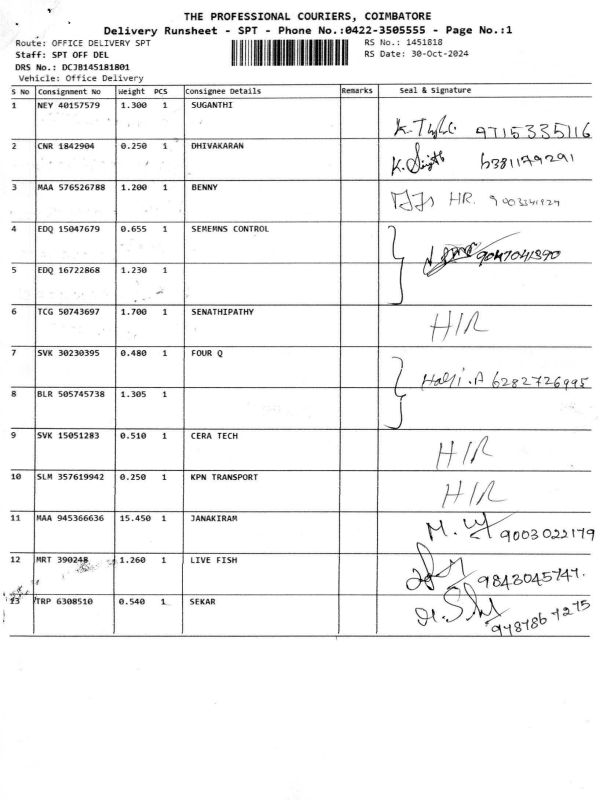 THE PROFESSIONAL COURIERS, COIMBATORE
Delivery Runsheet - SPT - Phone No.:0422-3505555 - Page No.:1
Route: OFFICE DELIVERY SPT RS No.: 1451818
Staff: SPT OFF DEL RS Date: 30-Oct-2024
DRS No.: DCJB145181801
Vehicle: Office Delivery
S No Consignment No Weight PCS Consignee Details Remarks Seal & Signature
1 NEY 40157579 1.300 1 SUGANTHI
9715335116
2 CNR 1842904 0.250 1 DHIVAKARAN
K. 6381179291
3 MAA 576526788 1.200 1 BENNY
HR. 9003341924
4 EDQ 15047679 0.655 1 SEMEMNS CONTROL
9047041390
5 EDQ 16722868 1.230 1
6 TCG 50743697 1.700 1 SENATHIPATHY
H/R
7 SVK 30230395 0.480 1 FOUR Q
6282726995
8 BLR 505745738 1.305 1
9 SVK 15051283 0.510 1 CERA TECH
H/R
10 SLM 357619942 0.250 1 KPN TRANSPORT
H/R
11 MAA 945366636 15.450 1 JANAKIRAM
M. 9003022179
12 MRT 390248 1.260 1 LIVE FISH
9843045747.
13 TRP 6308510 0.540 1 SEKAR
9787867275